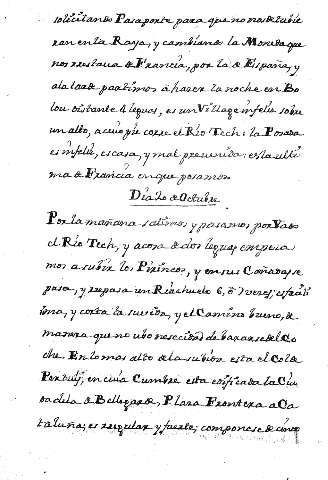 solicitando Pasaporte para que no nos detubie
ran en la Raya, y cambiando la Moneda que
nos restava de Francia, por la de España, y
a la tarde partimos à hacer la noche en Bo
lou distante 4 leguas, es un Village infeliz sobre
un alto, a cuio pie corre el Rio Tech: la Posada
es infeliz, escasa, y mal prevenida: esta ulti
ma de Francia en que posamos.
Dia 20 de Octubre
Por la mañana salimos y pasamos por Vado
el Rio Tech, y acosa de dos leguas empeza
mos a subir los Pirineos, y en sus Cañadas se
pasa, y repasa un Riachuelo 6, ò 7 veces; es facili
sima, y corta la suvida, y el Camino bueno, de
manera que no ubo necesidad de baxarse del Co
che. En lo mas alto de la subida esta el Col de
Pertus, en cuia Cumbre esta edificada la Ciu
dadela de Bellegarde, Plaza Frontera a Ca
taluña; es regular y fuerte; componese de cinco